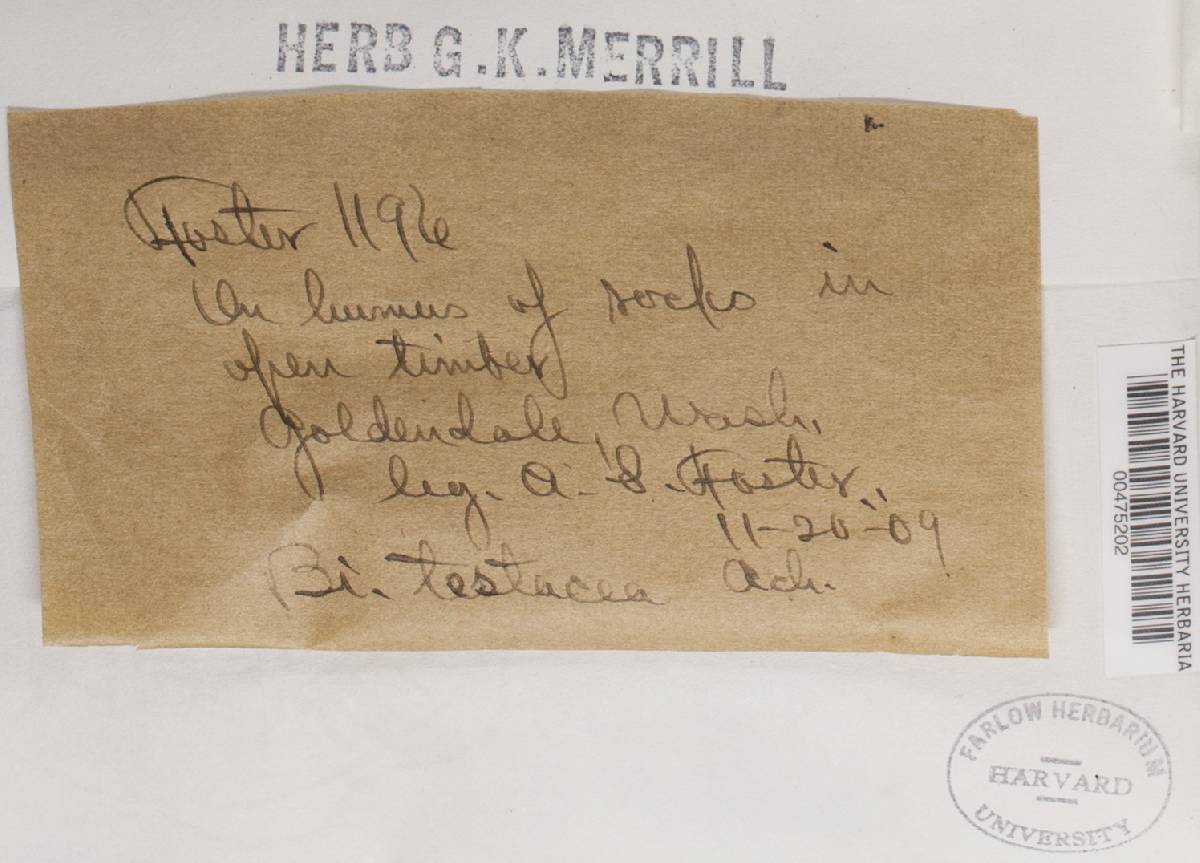 HERB G.K.MERRILL
Foster 1196
On humus of rocks in
open timber
Goldendale, Wash.
leg. A. S. Foster.
11-20-09
Bi. testacea Ach.
THE HARVARD UNIVERSITY HERBARIA
00475202
FARLOW HERBARIUM
HARVARD
UNIVERSITY